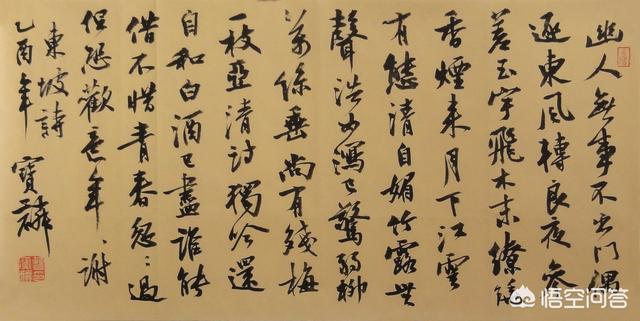 幽人無事不出門偶
逐東風轉良夜參
差玉宇飛木末繚繞
香煙來月下江雲
有態清自媚竹露無
聲浩如瀉已驚弱柳
萬絲垂尚有殘梅
一枝亞清詩獨吟還
自和白酒已盡誰能
借不惜青春忽〻過
但恐歡意年〻謝
東坡詩
乙酉年 寶麟
悟空问答